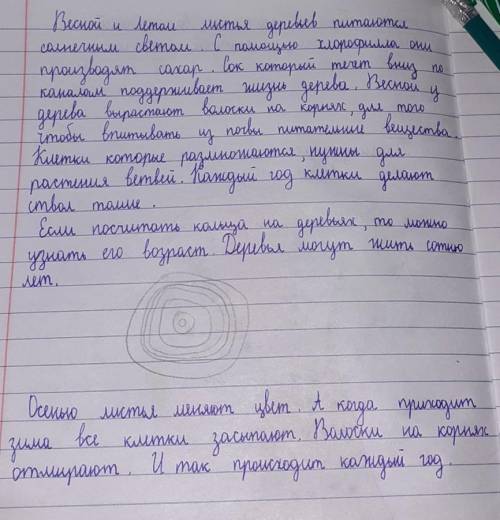 Весной и летом листья деревьев питаются
солнечным светом. С помощью хлорофилла они
производят сахар. Сок который течет вниз по
каналам поддерживает жизнь дерева. Весной у
дерева вырастают волоски на корнях, для того
чтобы впитывать из почвы питательные вещества.
Клетки которые размножаются, нужны для
растения ветвей. Каждый год клетки делают
ствол толще.
Если посчитать кольца на деревьях, то можно
узнать его возраст. Деревья могут жить сотню
лет.
Осенью листья меняют цвет. А когда приходит
зима все клетки засыпают. Волоски на корнях
отмирают. И так происходит каждый год.